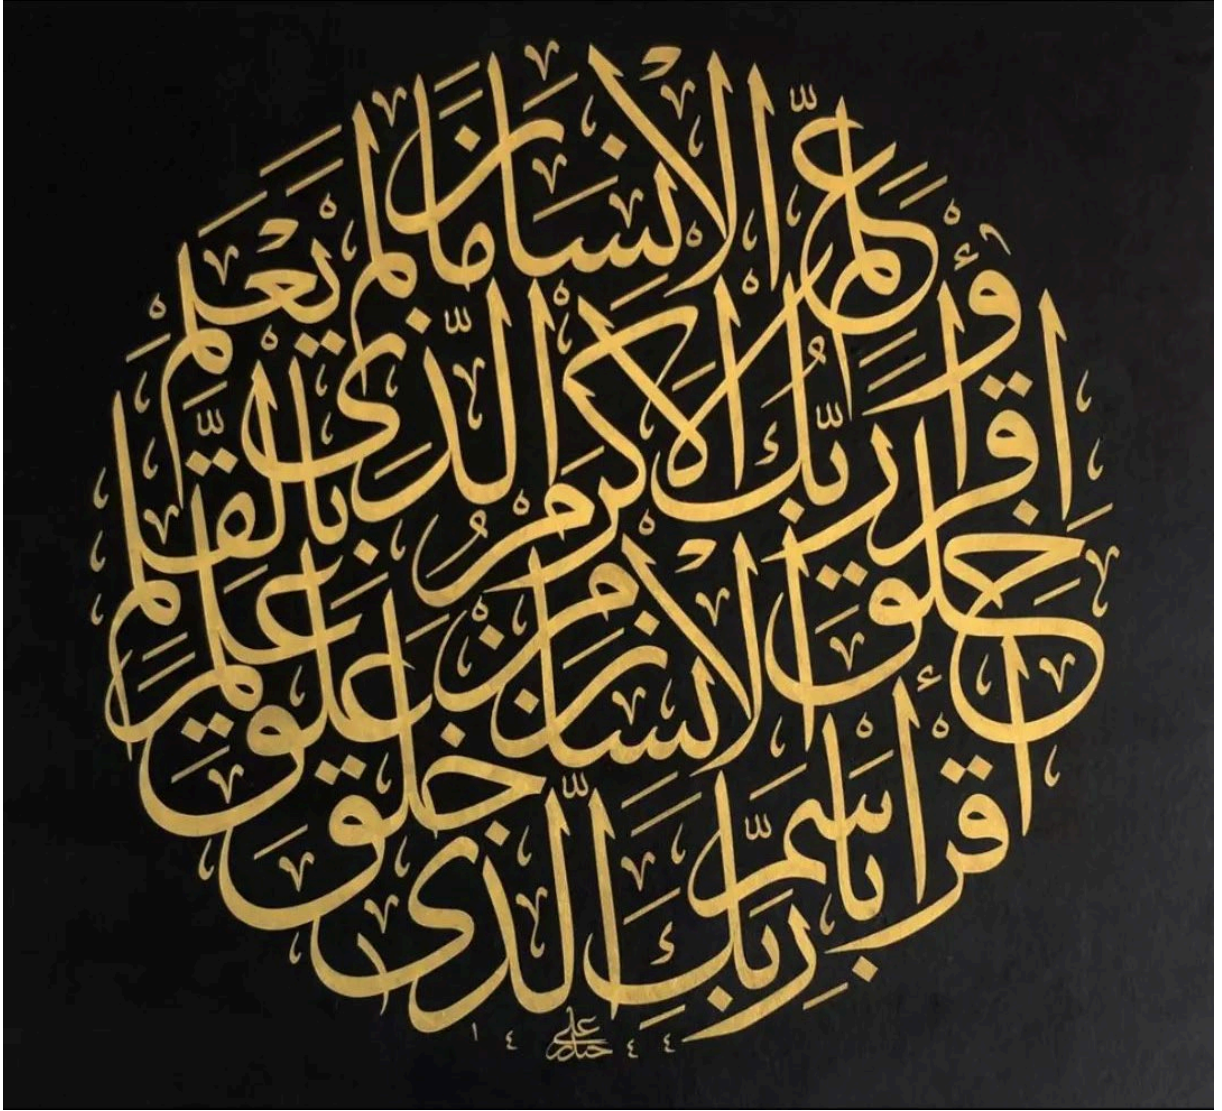 اقْرَأْ بِاسْمِ رَبِّكَ الَّذِى خَلَقَ
خَلَقَ الْاِنْسَانَ مِنْ عَلَقٍ
اقْرَأْ وَرَبُّكَ الْاَكْرَمُ الَّذِى عَلَّمَ بِالْقَلَمِ
عَلَّمَ الْاِنْسَانَ مَا لَمْ يَعْلَمْ
علي حيدر
١٤٤٤